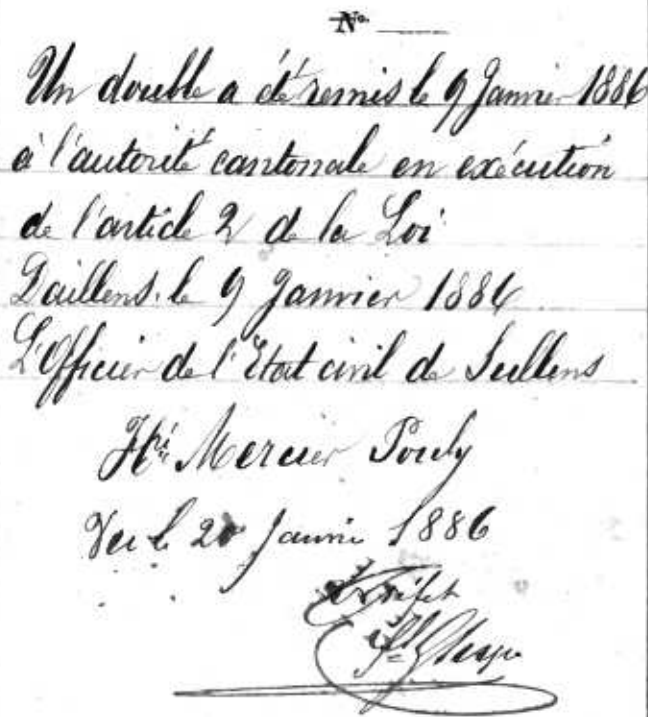 No.
Un double a été remis le 9 Janvier 1886
à l'autorité cantonale en exécution
de l'article 2 de la Loi
Daillens. le 9 Janvier 1886
L'Officier de l'Etat civil de Sullens
Hri Mercier Pouly
Vu le 20 Janvier 1886